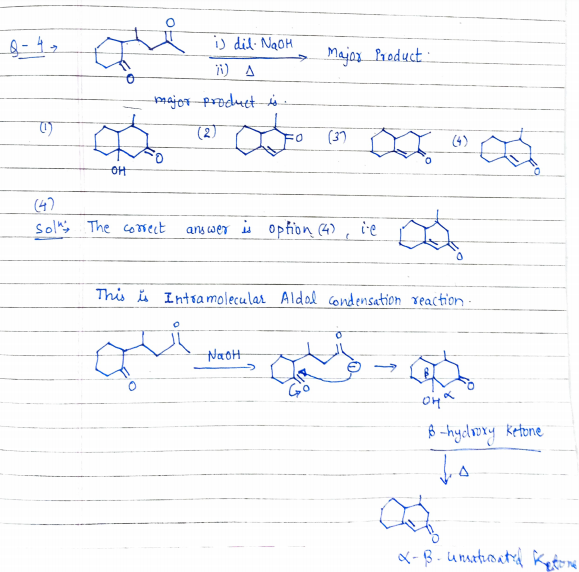 Q-4→
O
O
i) dil. NaOH
ii) Δ
Major Product.
major product is.
(1)
O
OH
(2)
O
(3)
O
(4)
O
(4)
Solⁿ→ The correct answer is option (4), i.e
O
This is Intramolecular Aldol condensation reaction.
O
O
NaOH
O
⊖
O
β
O
OH α
β-hydroxy Ketone
Δ
O
α-β-unsaturated Ketone